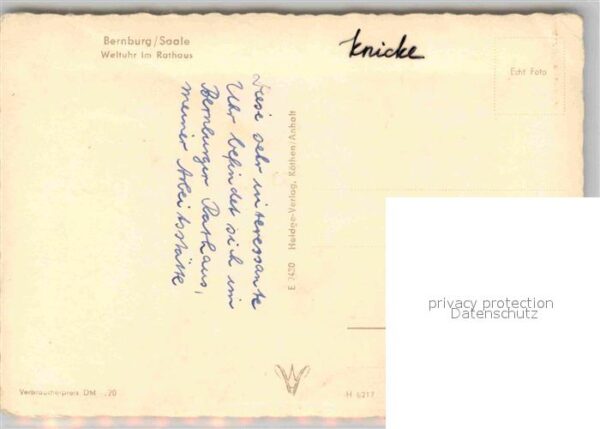 Bernburg/Saale
Weltuhr im Rathaus
knicke
Echt Foto
Diese sehr interessante
Uhr befindet sich im
Bernburger Rathaus,
meiner Arbeitsstätte
E 7420 Haldge-Verlag, Köthen/Anhalt
privacy protection
Datenschutz
Verbraucherpreis DM -,20
H 6217